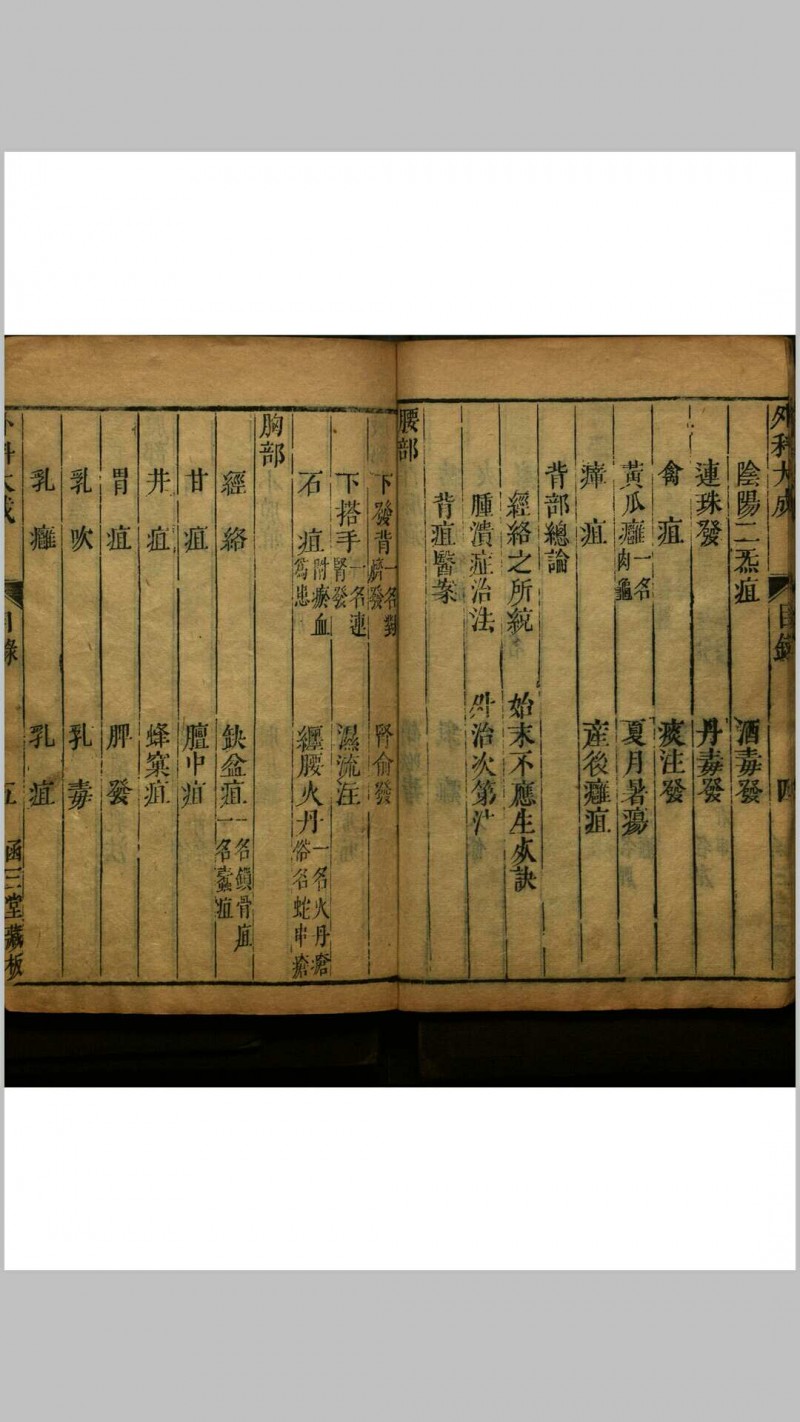 外科大成 目錄 四
陰陽二炁疽 酒毒發
連珠發 丹毒發
禽疽 痰注發
黃瓜癰一名肉龜 夏月暑瘍
瘴疽 產後癰疽
背部總論
經絡之所統 始末不應生灰訣
腫潰症治法 外治次第法
背疽醫案
腰部
下發背一名對臍發 腎俞發
下搭手一名連腎發 濕流注
石疽附瘀血為患 纏腰火丹一名火丹瘡俗名蛇串瘡
胸部
經絡 缺盆疽一名鎖骨疽一名蠹疽
甘疽 膻中疽
井疽 蜂窠疽
胃疽 脾發
乳吹 乳毒
乳癰 乳疽
外科大成 目錄 五 函三堂藏板